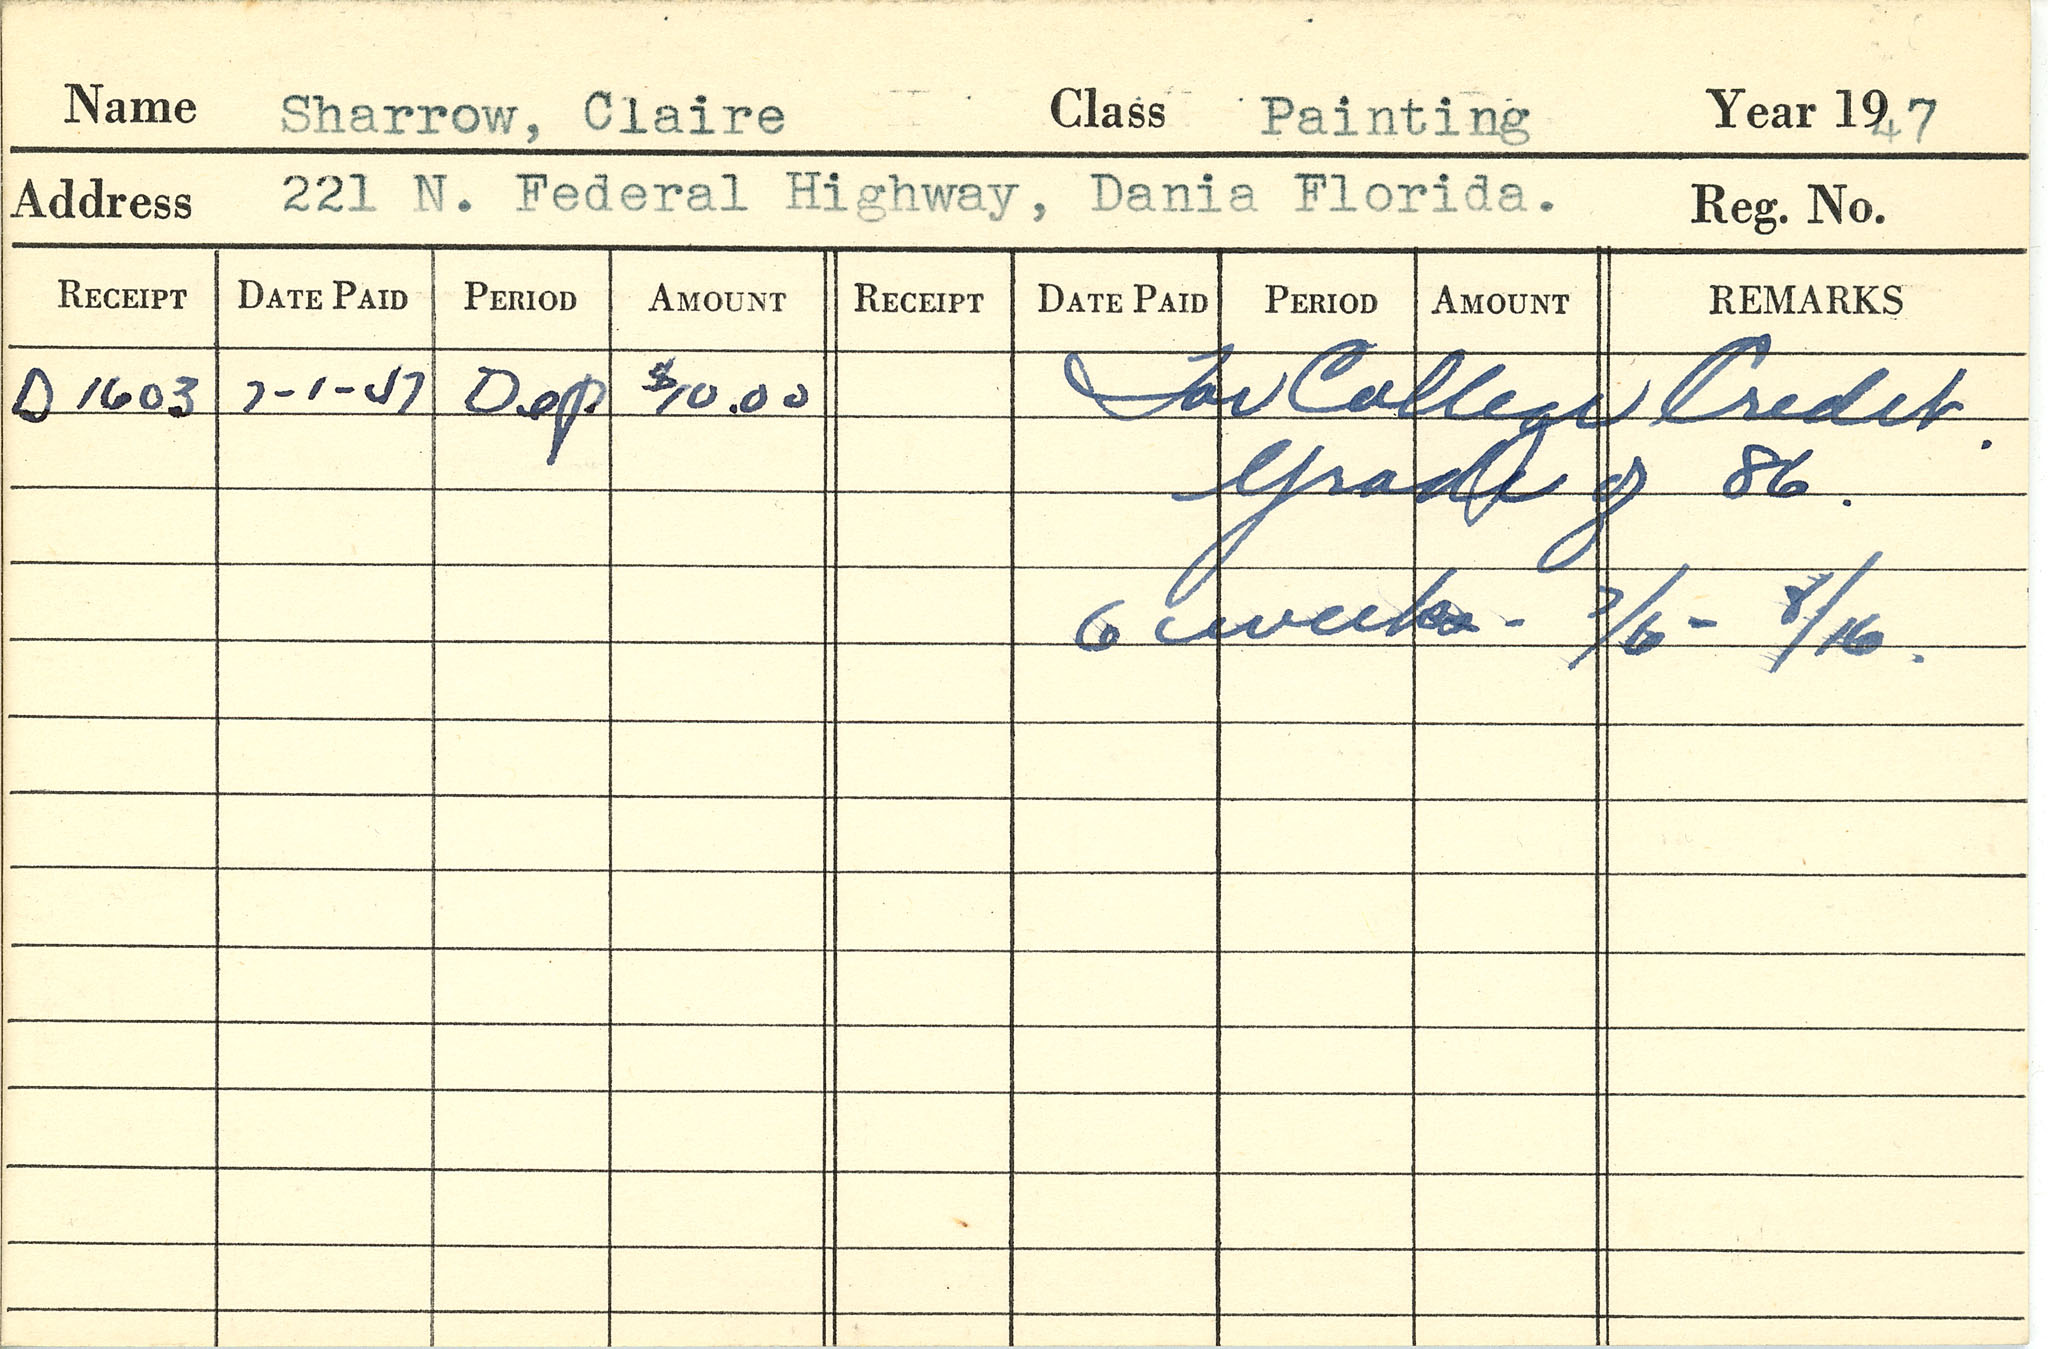 Name Sharrow, Claire Class Painting Year 1947
Address 221 N. Federal Highway, Dania Florida. Reg. No.
RECEIPT DATE PAID PERIOD AMOUNT RECEIPT DATE PAID PERIOD AMOUNT REMARKS
D 1603 7-1-47 Dep $10.00 For College Credit.
Grade of 86.
6 weeks - 7/6 - 8/16.